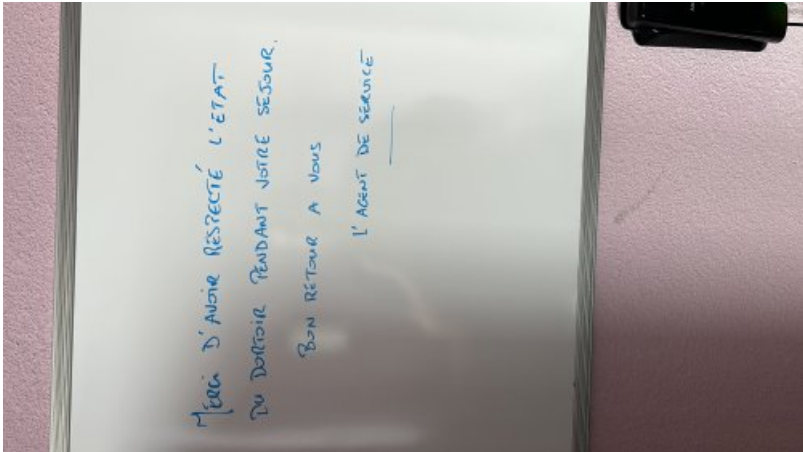 MERCI D'AVOIR RESPECTÉ L'ÉTAT
DU DORTOIR PENDANT VOTRE SÉJOUR.
BON RETOUR A VOUS
L'AGENT DE SERVICE